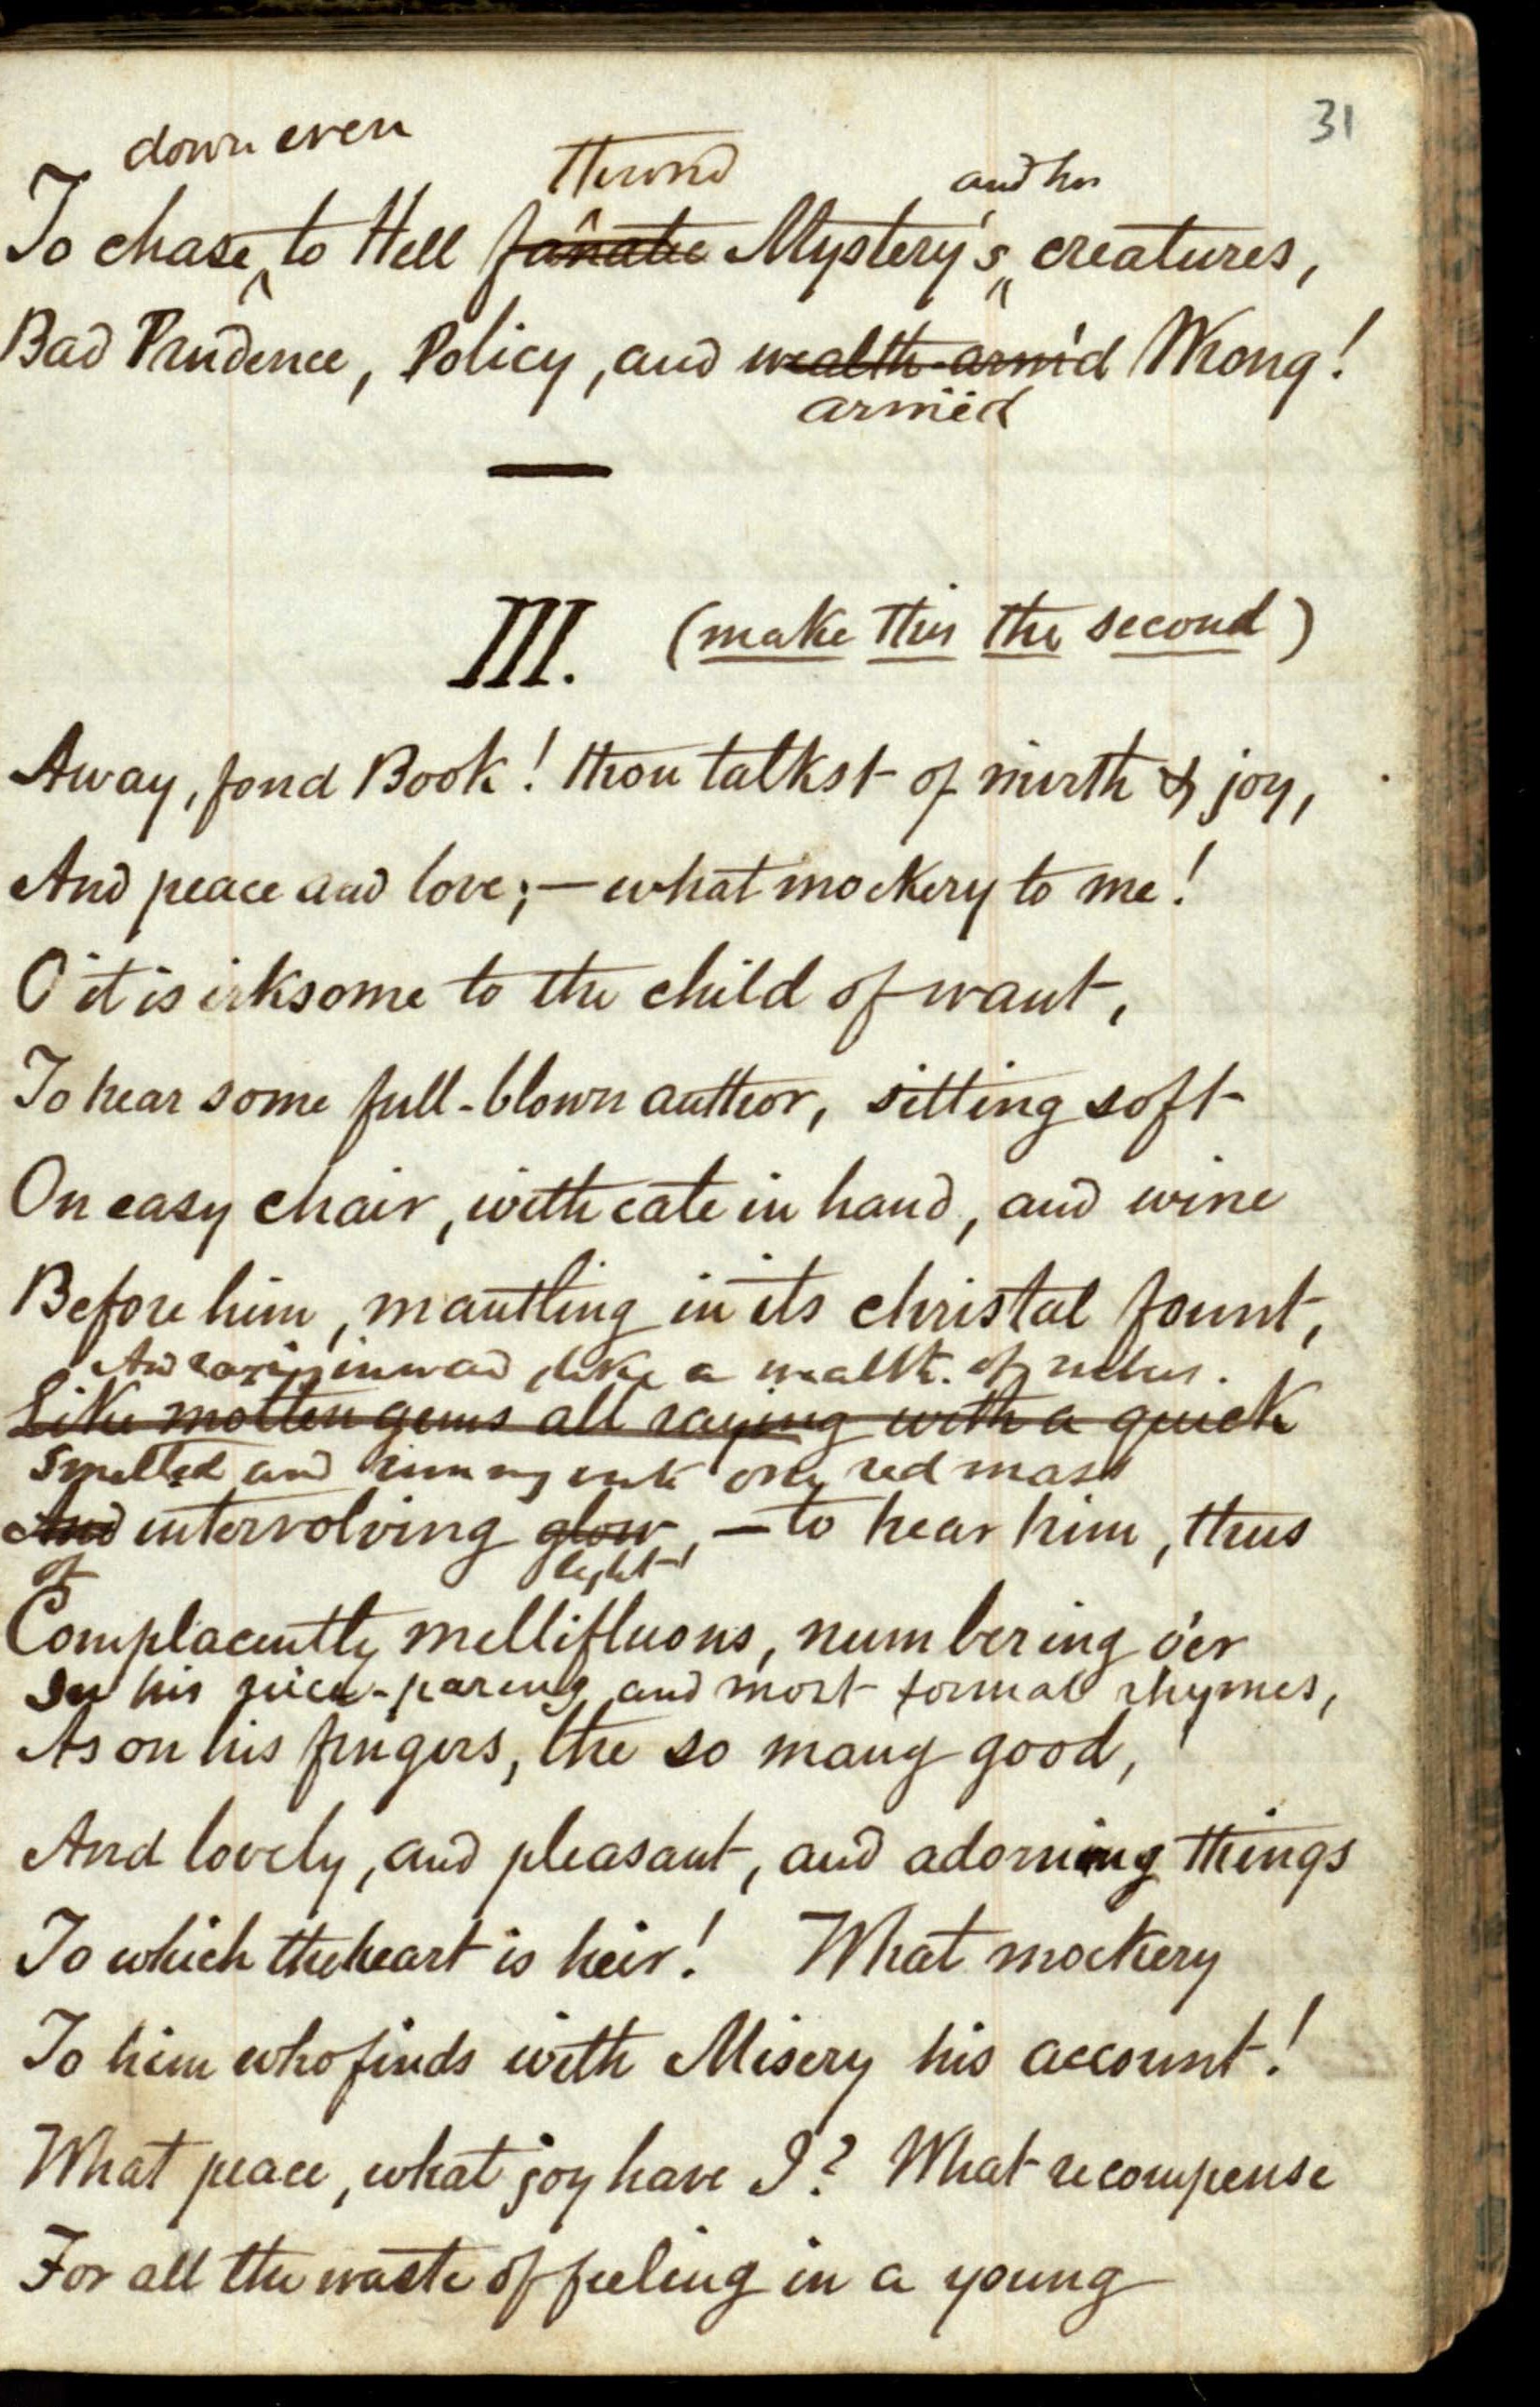 31
down even
thron'd
and her
To chase to Hell fanatic Mystery's creatures,
Bad Prudence, Policy, and wealth-arm'd Wrong!
armëd
III. (make this the second)
Away, fond Book! thou talkst of mirth & joy,
And peace and love; — what mockery to me!
O it is irksome to the child of want,
To hear some full-blown author, sitting soft
On easy chair, with cate in hand, and wine
Before him, mantling in its christal fount,
And inward, like a wealth of rubies.
Like molten gems all raying with a quick
Smelted and running into one red mass
And intervolving glow, — to hear him, thus
of light
Complacently mellifluous, numbering o'er
In his and most formal rhymes,
As on his fingers, the so many good,
And lovely, and pleasant, and adorning things
To which the heart is heir! What mockery
To him who finds with Misery his account!
What peace, what joy have I? What recompense
For all the waste of feeling in a young